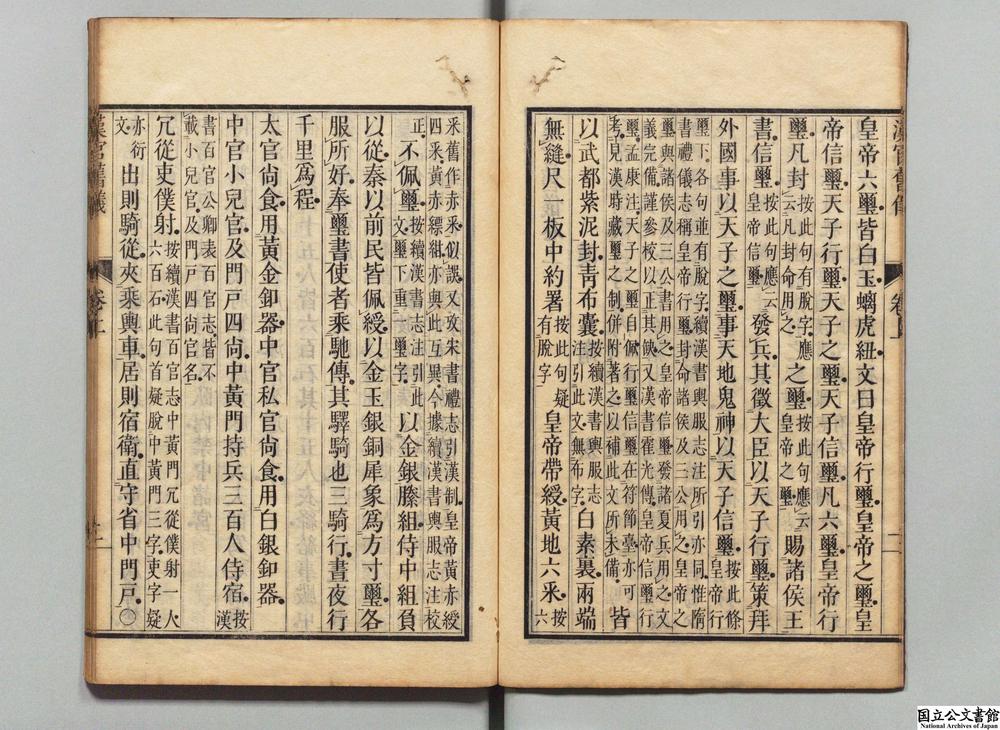 漢官舊儀 卷上 二
皇帝六璽皆白玉螭虎紐文曰皇帝行璽皇帝之璽皇
帝信璽天子行璽天子之璽天子信璽凡六璽皇帝行
璽凡封按此句有脫字應云凡封命用之之璽按此句應云皇帝之璽賜諸侯王
書信璽按此句應云皇帝信璽發兵其徵大臣以天子行璽策拜
外國事以天子之璽事天地鬼神以天子信璽按此條皇帝行
璽下各句並有脫字續漢書輿服志注所引亦同惟隋
書禮儀志稱皇帝行璽封命諸侯及三公用之皇帝之
璽與諸侯及三公書用之皇帝信璽發諸夏兵用之文
義完備謹參校以正其缺又漢書霍光傳皇帝信璽行
璽孟康注天子之璽自佩行璽信璽在符節臺亦可
考見漢時藏璽之制併附著之以補此文所未備皆
以武都紫泥封青布囊按續漢書輿服志注引此文無布字白素裏兩端
無縫尺一板中約署按此句疑有脫字皇帝帶綬黃地六采按六
采舊作赤采似誤又攷宋書禮志引漢制皇帝黃赤綬
四采黃赤縹紺亦與此互異今據續漢書輿服志注校
正不佩璽按續漢書志注引此文璽下重一璽字以金銀縢組侍中組負
以從秦以前民皆佩綬以金玉銀銅犀象爲方寸璽各
服所好奉璽書使者乘馳傳其驛騎也三騎行晝夜行
千里爲程
太官尚食用黃金釦器中官私官尚食用白銀釦器
中官小兒官及門戸四尚中黃門持兵三百人侍宿按漢
書百官公卿表百官志皆不
載小兒官及門戸四尚官名
冗從吏僕射按續漢書百官志中黃門冗從僕射一人六百石此句首疑脫中黃門三字吏字疑
亦衍文出則騎從夾乘輿車居則宿衛直守省中門戸〇
漢官舊儀 卷上 二
国立公文書館
National Archives of Japan